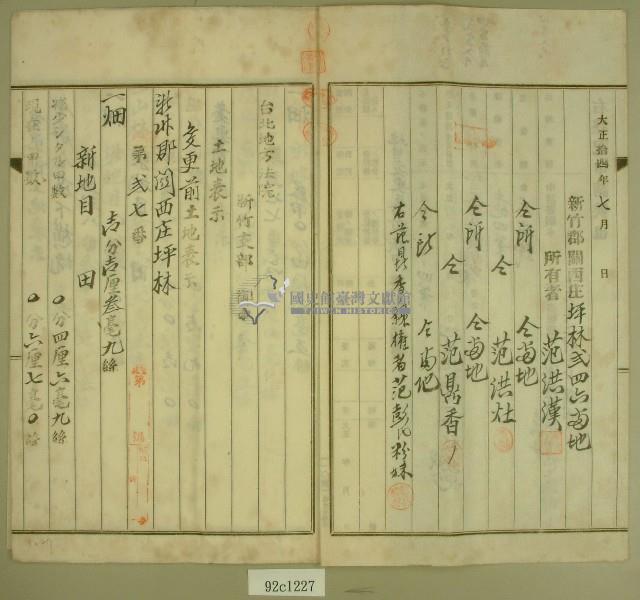 大正拾四年七月 日
新竹郡關西庄坪林弍四六番地
所有者 范洪漢
仝所 仝番地
仝 范洪灶
仝所 仝番地
仝 范鼎香
仝所 仝番地
右范鼎香親權者范彭氏粉妹
台北地方法院
新竹支部 御中
土地表示
変更前土地表示
新竹郡關西庄坪林
第弍七番
一畑 壱分壱厘叁毫九絲
新地目 田
減少シタル甲数 0分四厘六毫九絲
現在甲数 0分六厘七毫0絲
國史館臺灣文獻館
TAIWAN HISTORICA
92c1227